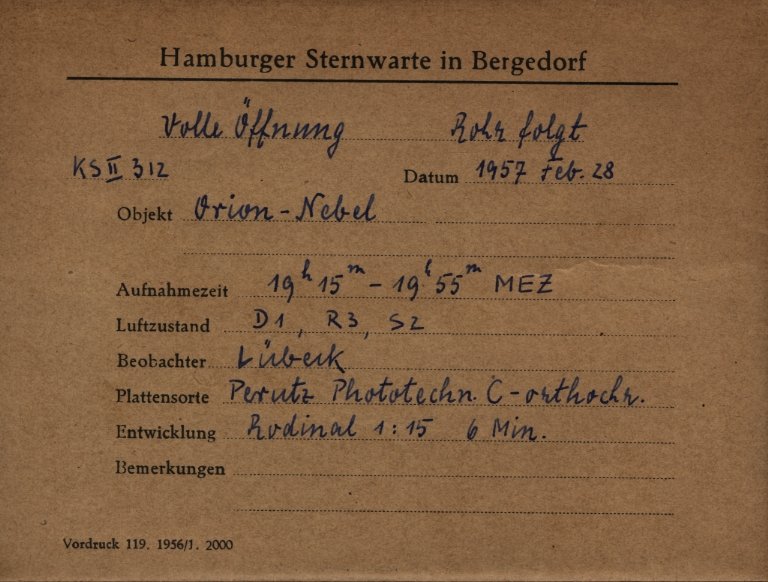 Hamburger Sternwarte in Bergedorf
Volle Öffnung Rohr folgt
KS II 312 Datum 1957 Feb. 28
Objekt Orion-Nebel
Aufnahmezeit 19h 15m - 19h 55m MEZ
Luftzustand D1, R3, S2
Beobachter Lübeck
Plattensorte Perutz Phototechn. C-orthochr.
Entwicklung Rodinal 1:15 6 Min.
Bemerkungen
Vordruck 119. 1956/1. 2000